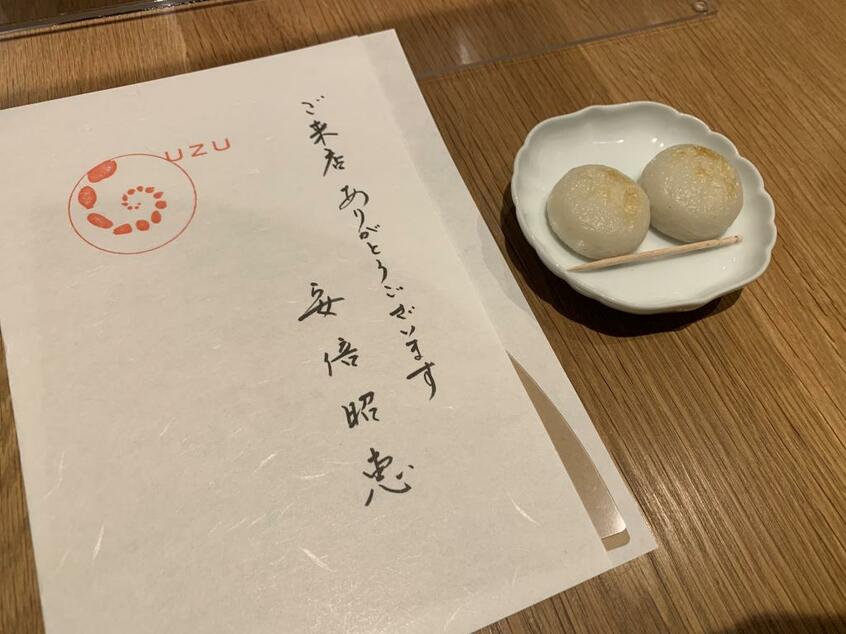 UZU
ご来店ありがとうございます
安倍昭恵